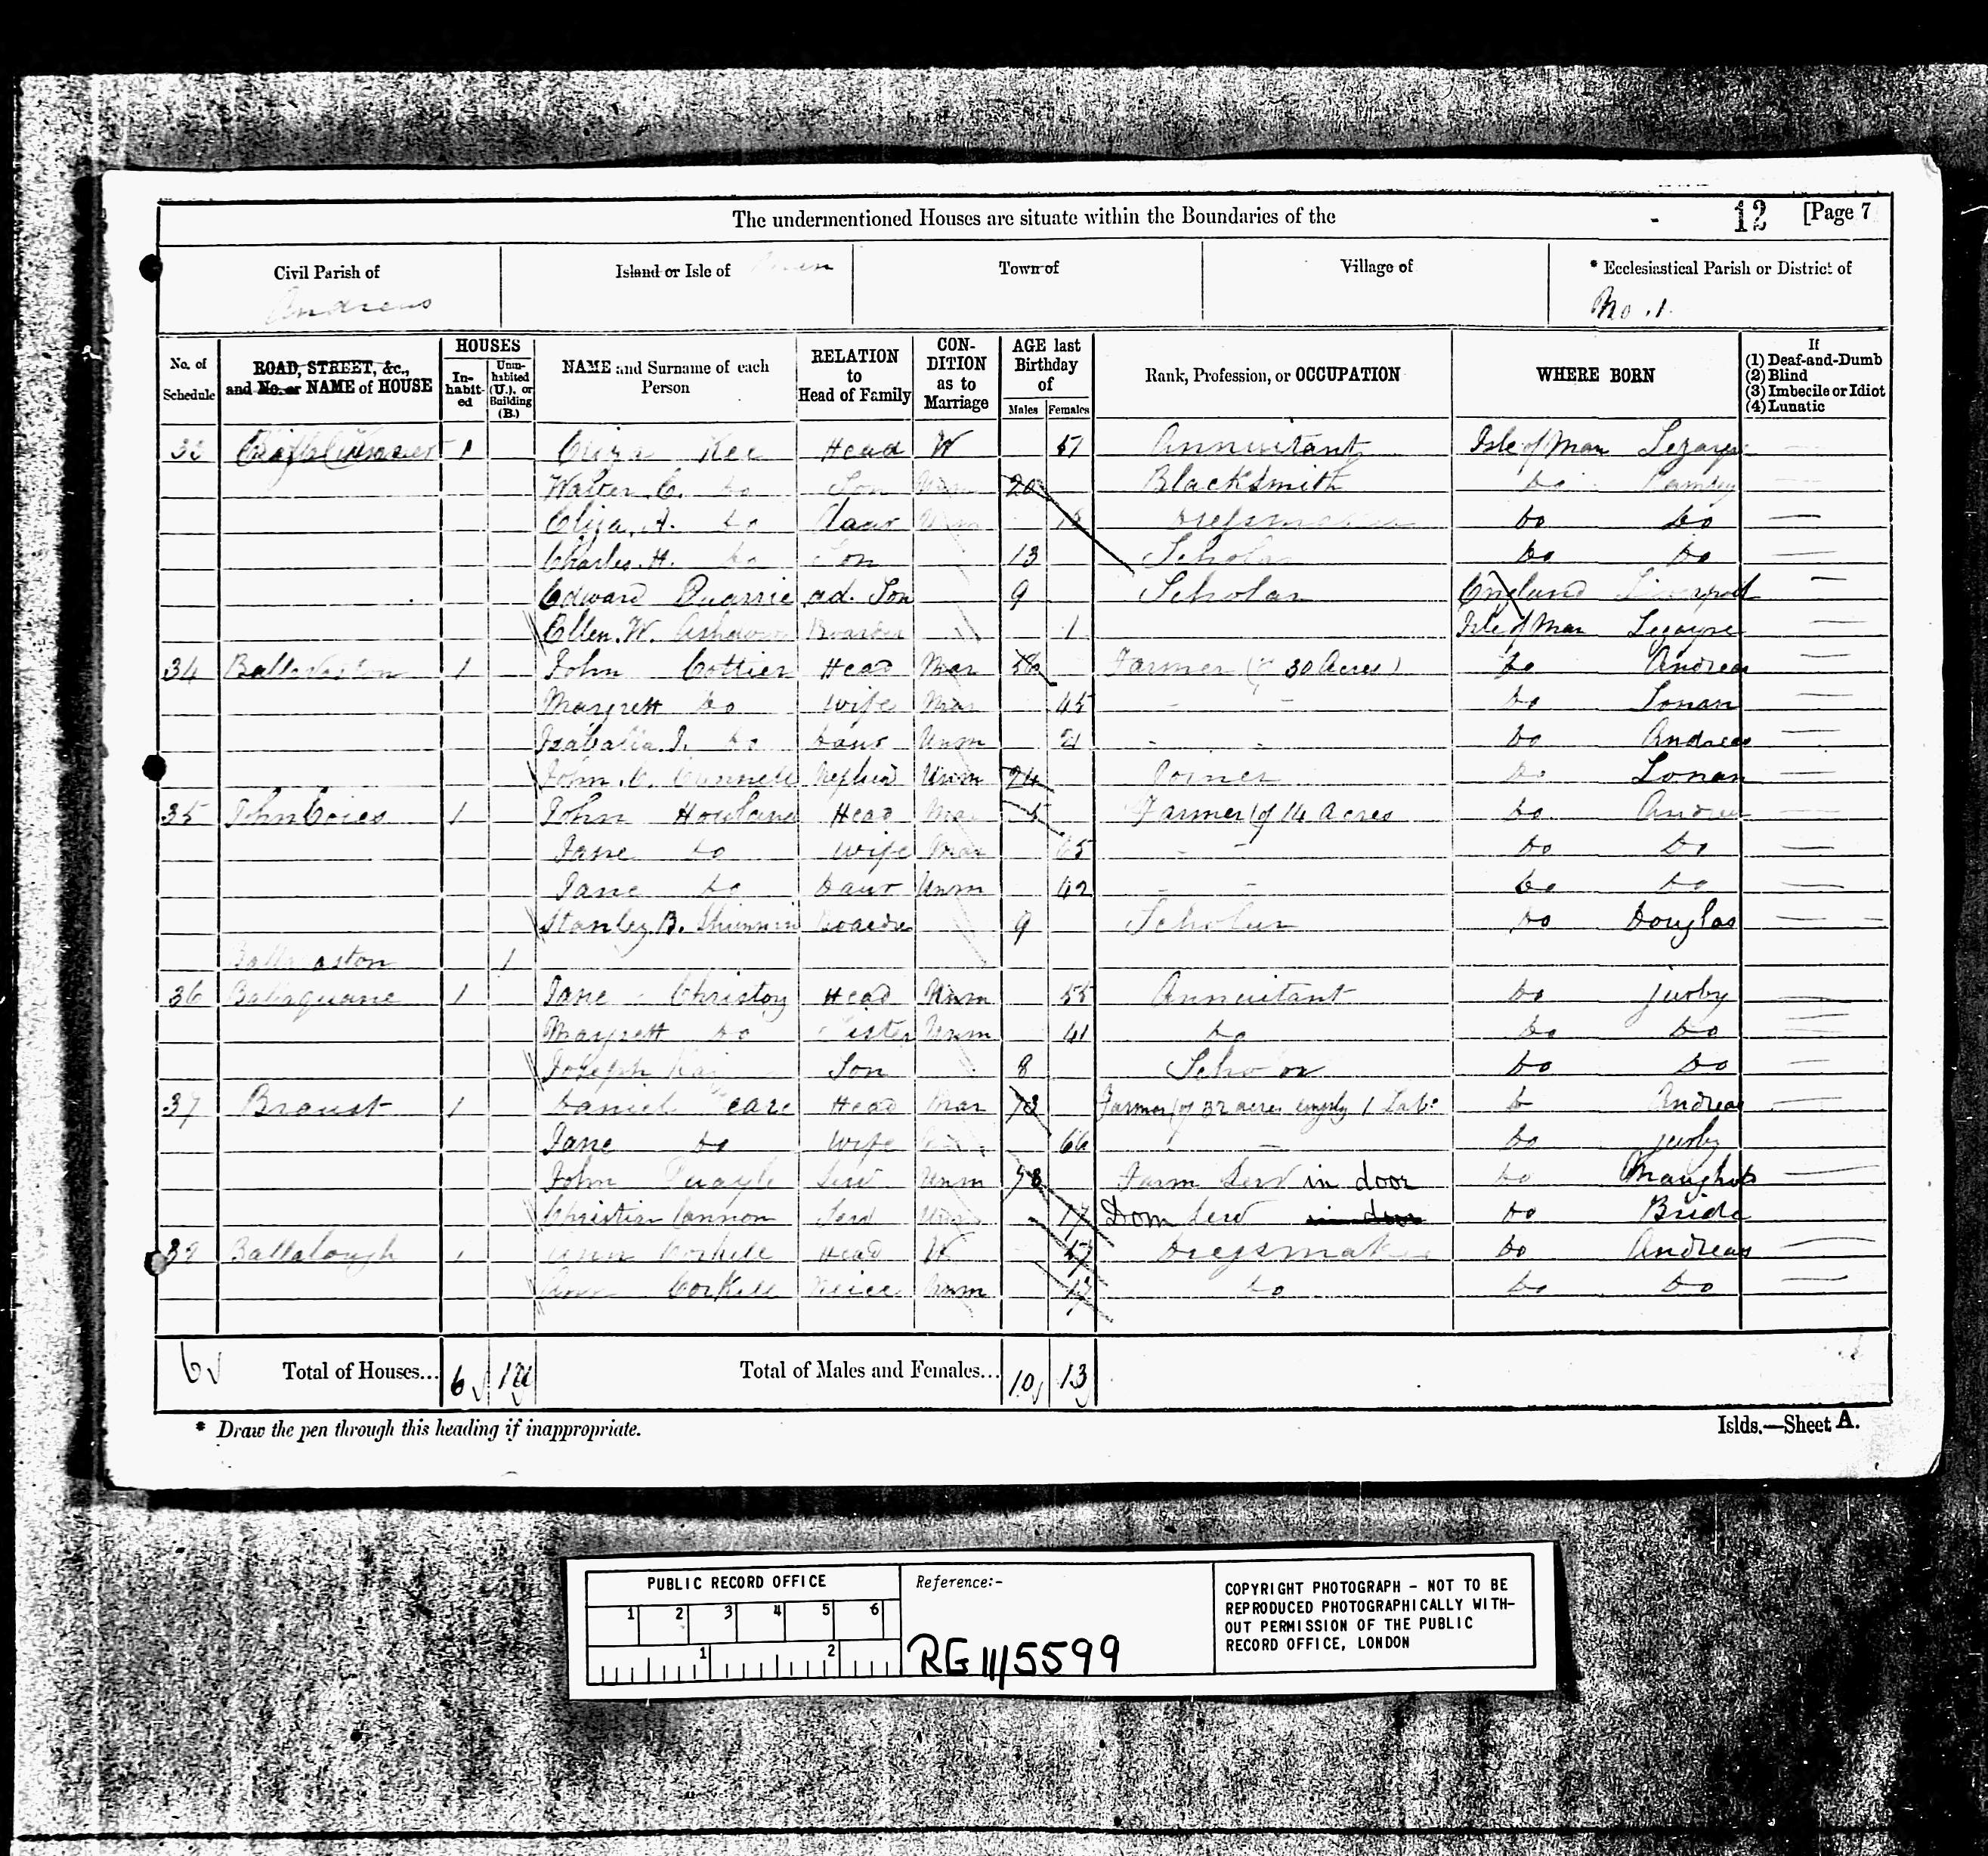 The undermentioned Houses are situate within the Boundaries of the 12 [Page 7
Civil Parish of Andreas Island or Isle of Man Town of Village of * Ecclesiastical Parish or District of No. 1.
No. of Schedule ROAD, STREET, &c., and No. or NAME of HOUSE HOUSES Inhabited Uninhabited (U.), or Building (B.) NAME and Surname of each Person RELATION to Head of Family CONDITION as to Marriage AGE last Birthday of Males Females Rank, Profession, or OCCUPATION WHERE BORN If (1) Deaf-and-Dumb (2) Blind (3) Imbecile or Idiot (4) Lunatic
33 1 Eliza Kee Head W 51 Annuitant Isle of Man Lezayre
Walter C. do Son Unm 20 Blacksmith do Ramsey
Eliza. A. do Daur Unm Dressmaker do do
Charles. H. do Son 13 Scholar do do
Edward Quarrie ad. Son 9 Scholar England Liverpool
Ellen. W. Boarder 1 Isle of Man Lezayre
34 1 John Cottier Head Mar Farmer (of 30 Acres) do Andreas
Margrett do Wife Mar 45 - - do Lonan
Isabalia. J. do Daur Unm 21 - - do Andreas
John. C. Nephew Unm 24 Joiner do Lonan
35 1 John Howland Head Mar Farmer (of 14 Acres do Andreas
Jane do Wife Mar - - do do
Jane do Daur Unm 42 - - do do
Stanley B. Boarder 9 Scholar do Douglas
Ballavaston 1
36 Ballaquane 1 Jane Christory Head Unm 55 Annuitant do jurby
Margrett do Sister Unm 41 do do do
Joseph Son 8 Scholar do do
37 Braust 1 Daniel Teare Head Mar 73 Farmer (of 32 acres emply 1 Labr do Andreas
Jane do Wife 66 - do jurby
John Quayle Serv Unm Farm Serv in door do Maughold
Christian Cannon Serv Unm 17 Dom Serv in door do Bride
38 Ballalough 1 Ann Corkill Head W 57 Dressmaker do Andreas
Ann Corkill Neice Unm 17 do do do
6 Total of Houses... 6 1U Total of Males and Females... 10 13
* Draw the pen through this heading if inappropriate. Islds.—Sheet A.
PUBLIC RECORD OFFICE
1 2 3 4 5 6
1 2
Reference:-
RG 11/5599
COPYRIGHT PHOTOGRAPH - NOT TO BE
REPRODUCED PHOTOGRAPHICALLY WITH-
OUT PERMISSION OF THE PUBLIC
RECORD OFFICE, LONDON